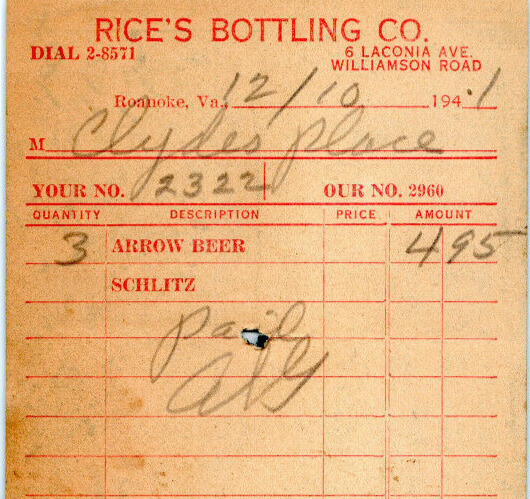 RICE'S BOTTLING CO.
DIAL 2-8571
6 LACONIA AVE.
WILLIAMSON ROAD
Roanoke, Va., 12/10 1941
M Clydes place
YOUR NO. 2322 OUR NO. 2960
QUANTITY DESCRIPTION PRICE AMOUNT
3 ARROW BEER 495
SCHLITZ
paid